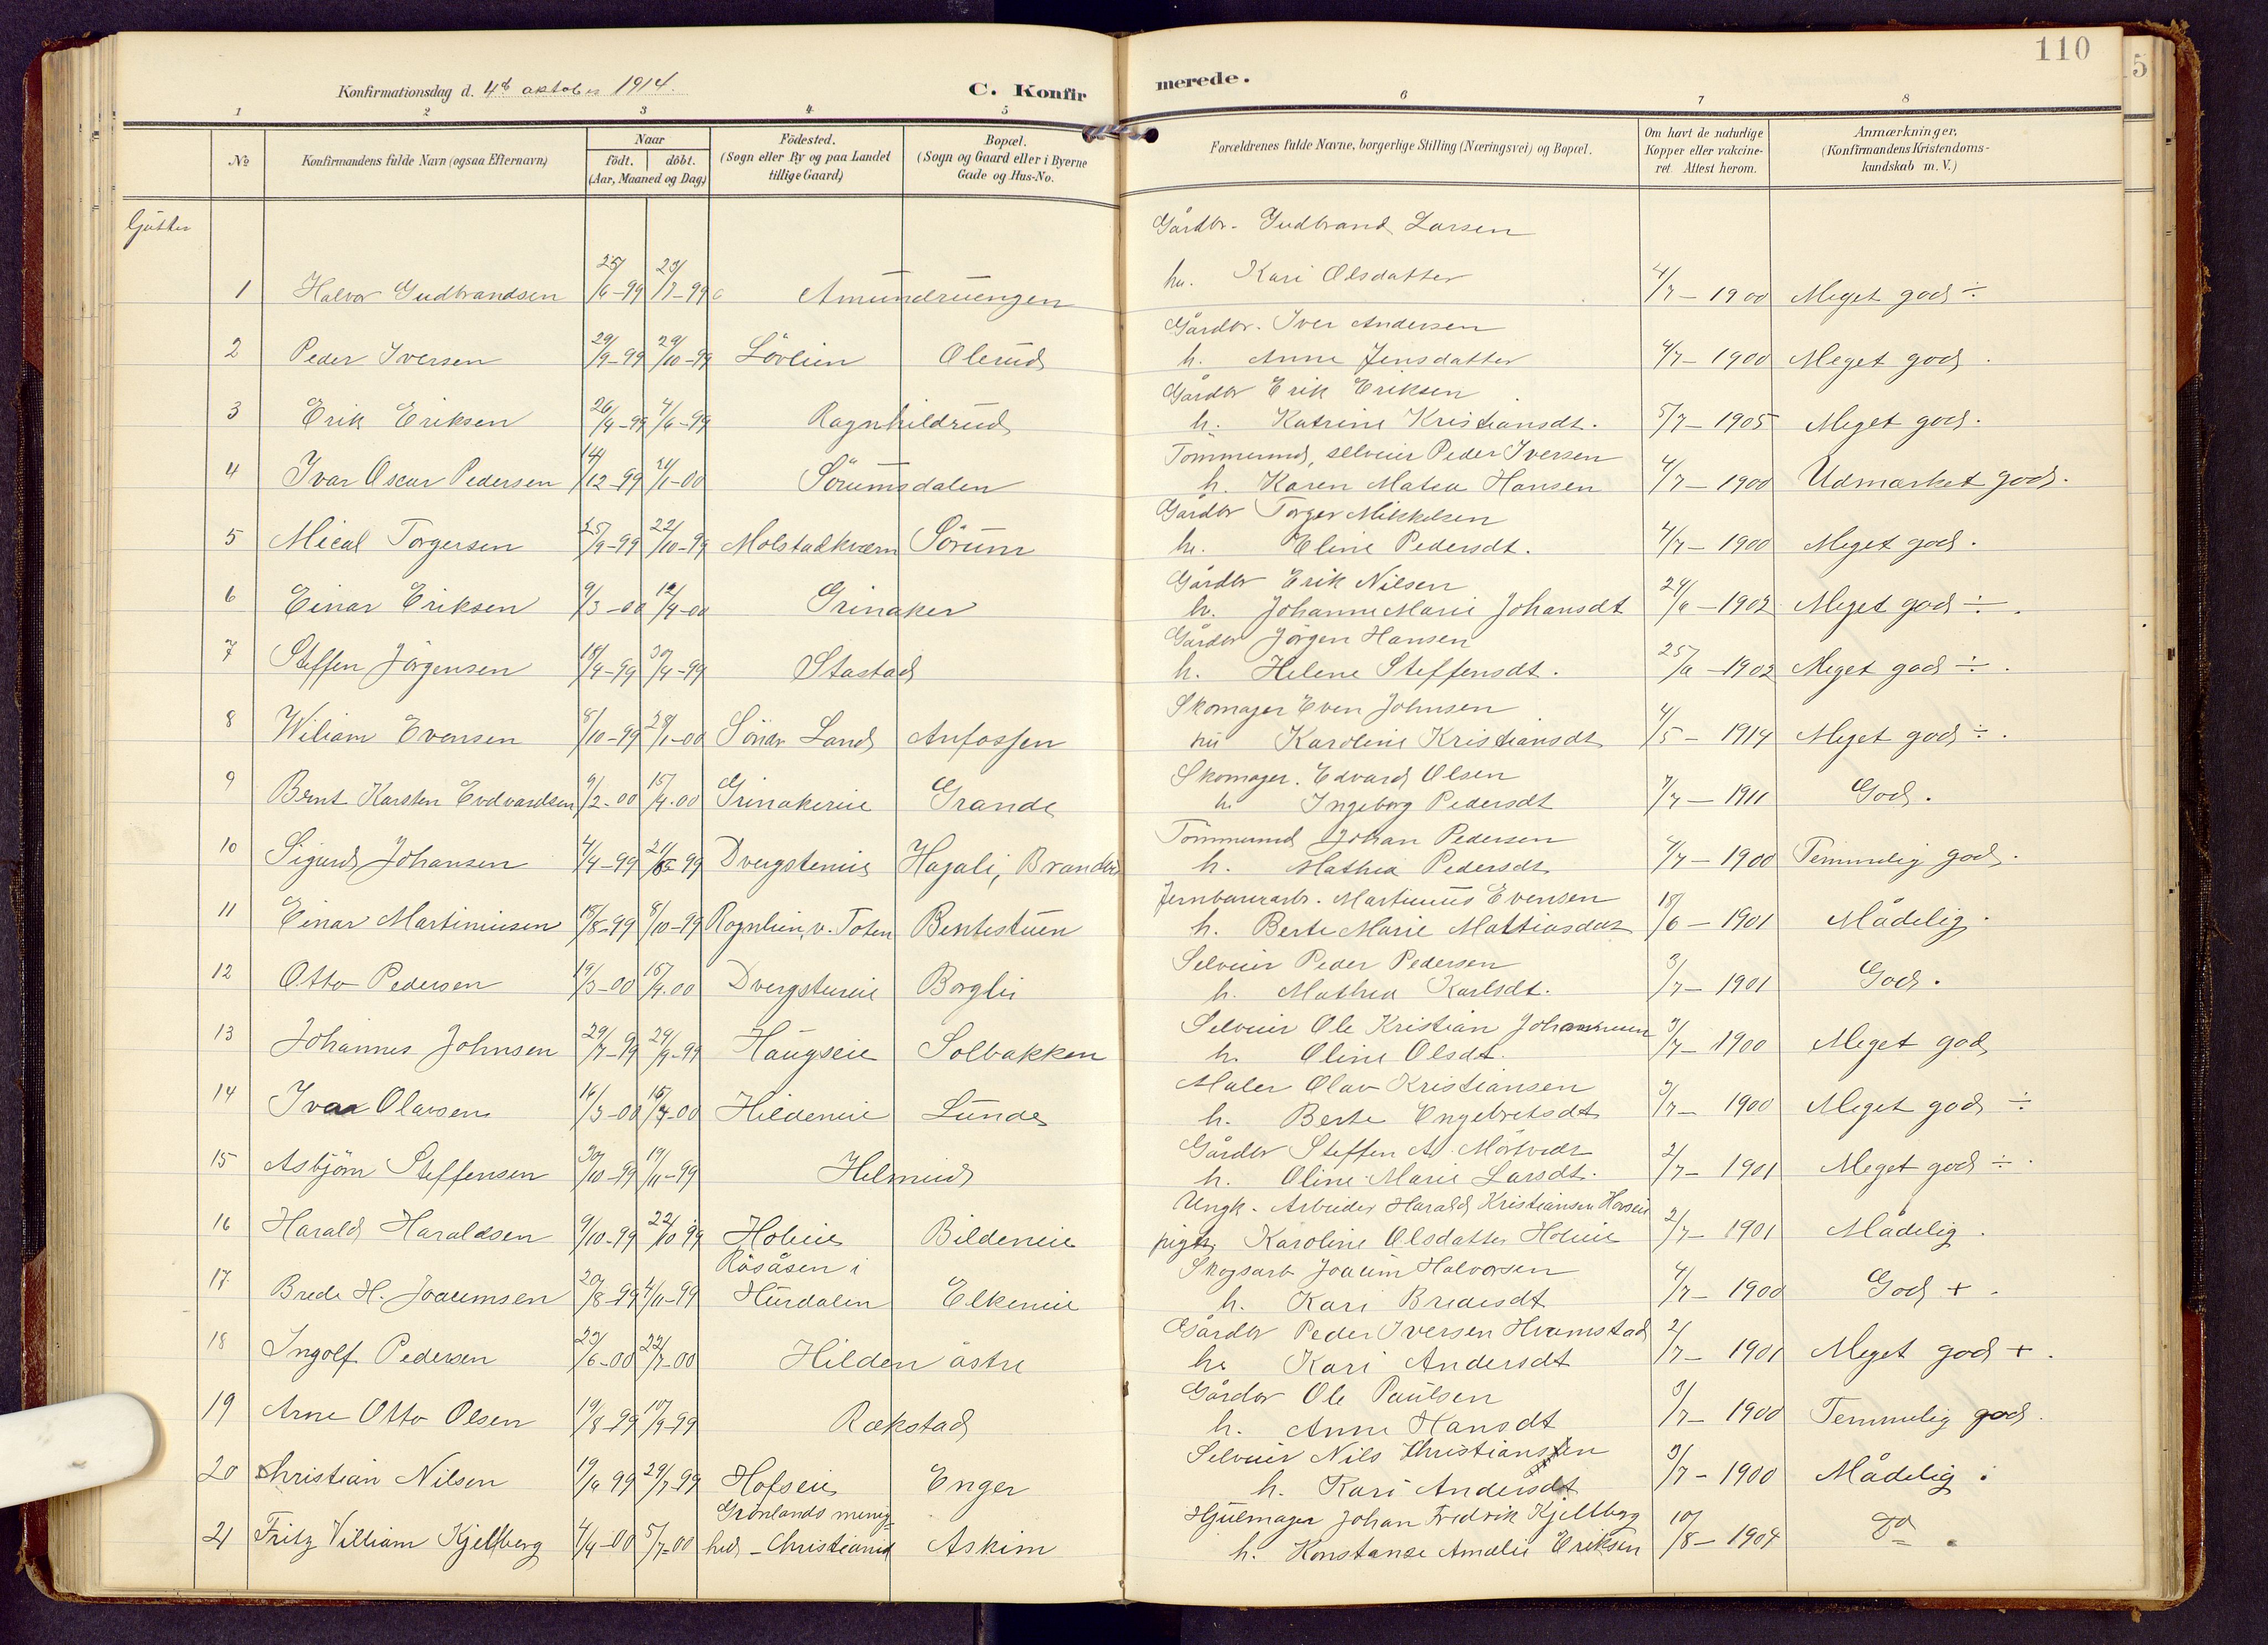 110
5
Konfirmationsdag d. 4de oktober 1914.
C. Konfir
merede.
1 2 3 4 5 6 7 8
No
Konfirmandens fulde Navn (ogsaa Efternavn)
Naar
födt. döbt.
(Aar, Maaned og Dag)
Födested.
(Sogn eller By og paa Landet
tillige Gaard)
Bopæl.
(Sogn og Gaard eller i Byerne
Gade og Hus-No.
Forældrenes fulde Navne, borgerlige Stilling (Næringsvei) og Bopæl.
Om havt de naturlige
Kopper eller vakcine-
ret. Attest herom.
Anmærkninger,
(Konfirmandens Kristendoms-
kundskab m. V.)
Gutter
Gårdbr. Gudbrand Larsen
1 Halvor Gudbrandsen 25/6-99 23/7-99 Amundruengen hu. Kari Olsdatter 4/7-1900 Meget god ÷
Gårdbr. Iver Andersen
2 Peder Iversen 29/9-99 29/10-99 Lövlien Olerud h. Anne Jensdatter 4/7-1900 Meget god.
Gårdbr Erik Eriksen
3 Erik Eriksen 26/4-99 4/6-99 Ragnhildrud h. Katrine Kristiansdt. 5/7-1905 Meget god.
Tömmermd, selveier Peder Iversen
4 Ivar Oscar Pedersen 14/12-99 21/1-00 Sörumsdalen h. Karen Matea Hansen 4/7-1900 Udmærket god.
Gårdbr Torger Mikkelsen
5 Mical Torgersen 25/9-99 22/10-99 Molstadkværn Sörum h. Eline Pedersdt. 4/7-1900 Meget god.
Gårdbr Erik Nilsen
6 Einar Eriksen 9/3-00 12/4-00 Grinaker h. Johanne Marie Johansdt 24/6-1902 Meget god ÷.
Gårdbr Jörgen Hansen
7 Steffen Jörgensen 18/4-99 30/4-99 Stastad h. Helene Steffensdt. 25/6-1902 Meget god ÷.
Skomager Even Johnsen
8 Wiliam Evensen 8/10-99 28/1-00 Söndr Land Anfossen hu Karoline Kristiansdt 4/5-1914 Meget god ÷.
Skomager. Edvard Olsen
9 Bernt Karsten Evdvardsen 9/2-00 15/4-00 Grinakereie Grande h. Ingeborg Pedersdt 7/7-1911 God.
Tömmermd Johan Pedersen
10 Sigurd Johansen 4/4-99 21/5-99 Dvergsteneie Hagali, Brandbu h. Mathea Pedersdt 4/7-1900 Temmelig god.
Jernbanearb. Martinius Evensen
11 Einar Martiniusen 15/8-99 8/10-99 Rognlien, v. Toten Bentestuen h. Berte Marie Mattiasdat 18/6-1901 Mådelig.
Selveier Peder Pedersen
12 Otto Pedersen 19/3-00 15/4-00 Dvergsteneie Borgli h. Mathea Karlsdt. 3/7-1901 God.
Selveier Ole Kristian Johannesen
13 Johannes Johnsen 29/7-99 24/9-99 Haugseie Solbakken h. Oline Olsdt. 3/7-1900 Meget god
Maler Olav Kristiansen
14 Ivar Olavsen 16/3-00 15/4-00 Hildeneie Lunde h. Berte Engebretsdt 3/7-1900 Meget god ÷
Gårdbr Steffen A. Mörtvedt
15 Asbjörn Steffensen 30/10-99 19/11-99 Helmeid h. Oline Marie Larsdt. 2/7-1901 Meget god ÷.
Ungk. Arbeider Harald Kristiansen Hovseie
16 Harald Haraldsen 9/10-99 22/10 99 Holeie Bildeneie pige Karoline Olsdatter Holeie 2/7-1901 Mådelig.
Röisåsen i
Skogsarb Joacim Halvorsen
17 Brede H. Joacimsen 20/8-99 4/11-99 Hurdalen Elkeneie h. Kari Bredesdt 4/7-1900 God +.
Gårdbr Peder Iversen Hvamstad
18 Ingolf Pedersen 23/6-00 22/7-00 Hilden östre h. Kari Andersdt 2/7-1901 Meget god +.
Gårdbr Ole Paulsen
19 Arne Otto Olsen 19/8-99 17/9-99 Rækstad h. Anne Hansdt 3/7-1900 Temmelig god.
Selveier Nils Christiansen
20 Christian Nilsen 19/6 99 29/7-99 Hofseie Enger h. Kari Andersdt 3/7-1900 Mådelig.
Grönlands menig-
Hjulmager Johan Fredrik Kjellberg
21 Fritz Villiam Kjellberg 4/4-00 5/7-00 hed - Christiania Askim h. Konstanse Amalie Eriksen 10/8-1904 Do.